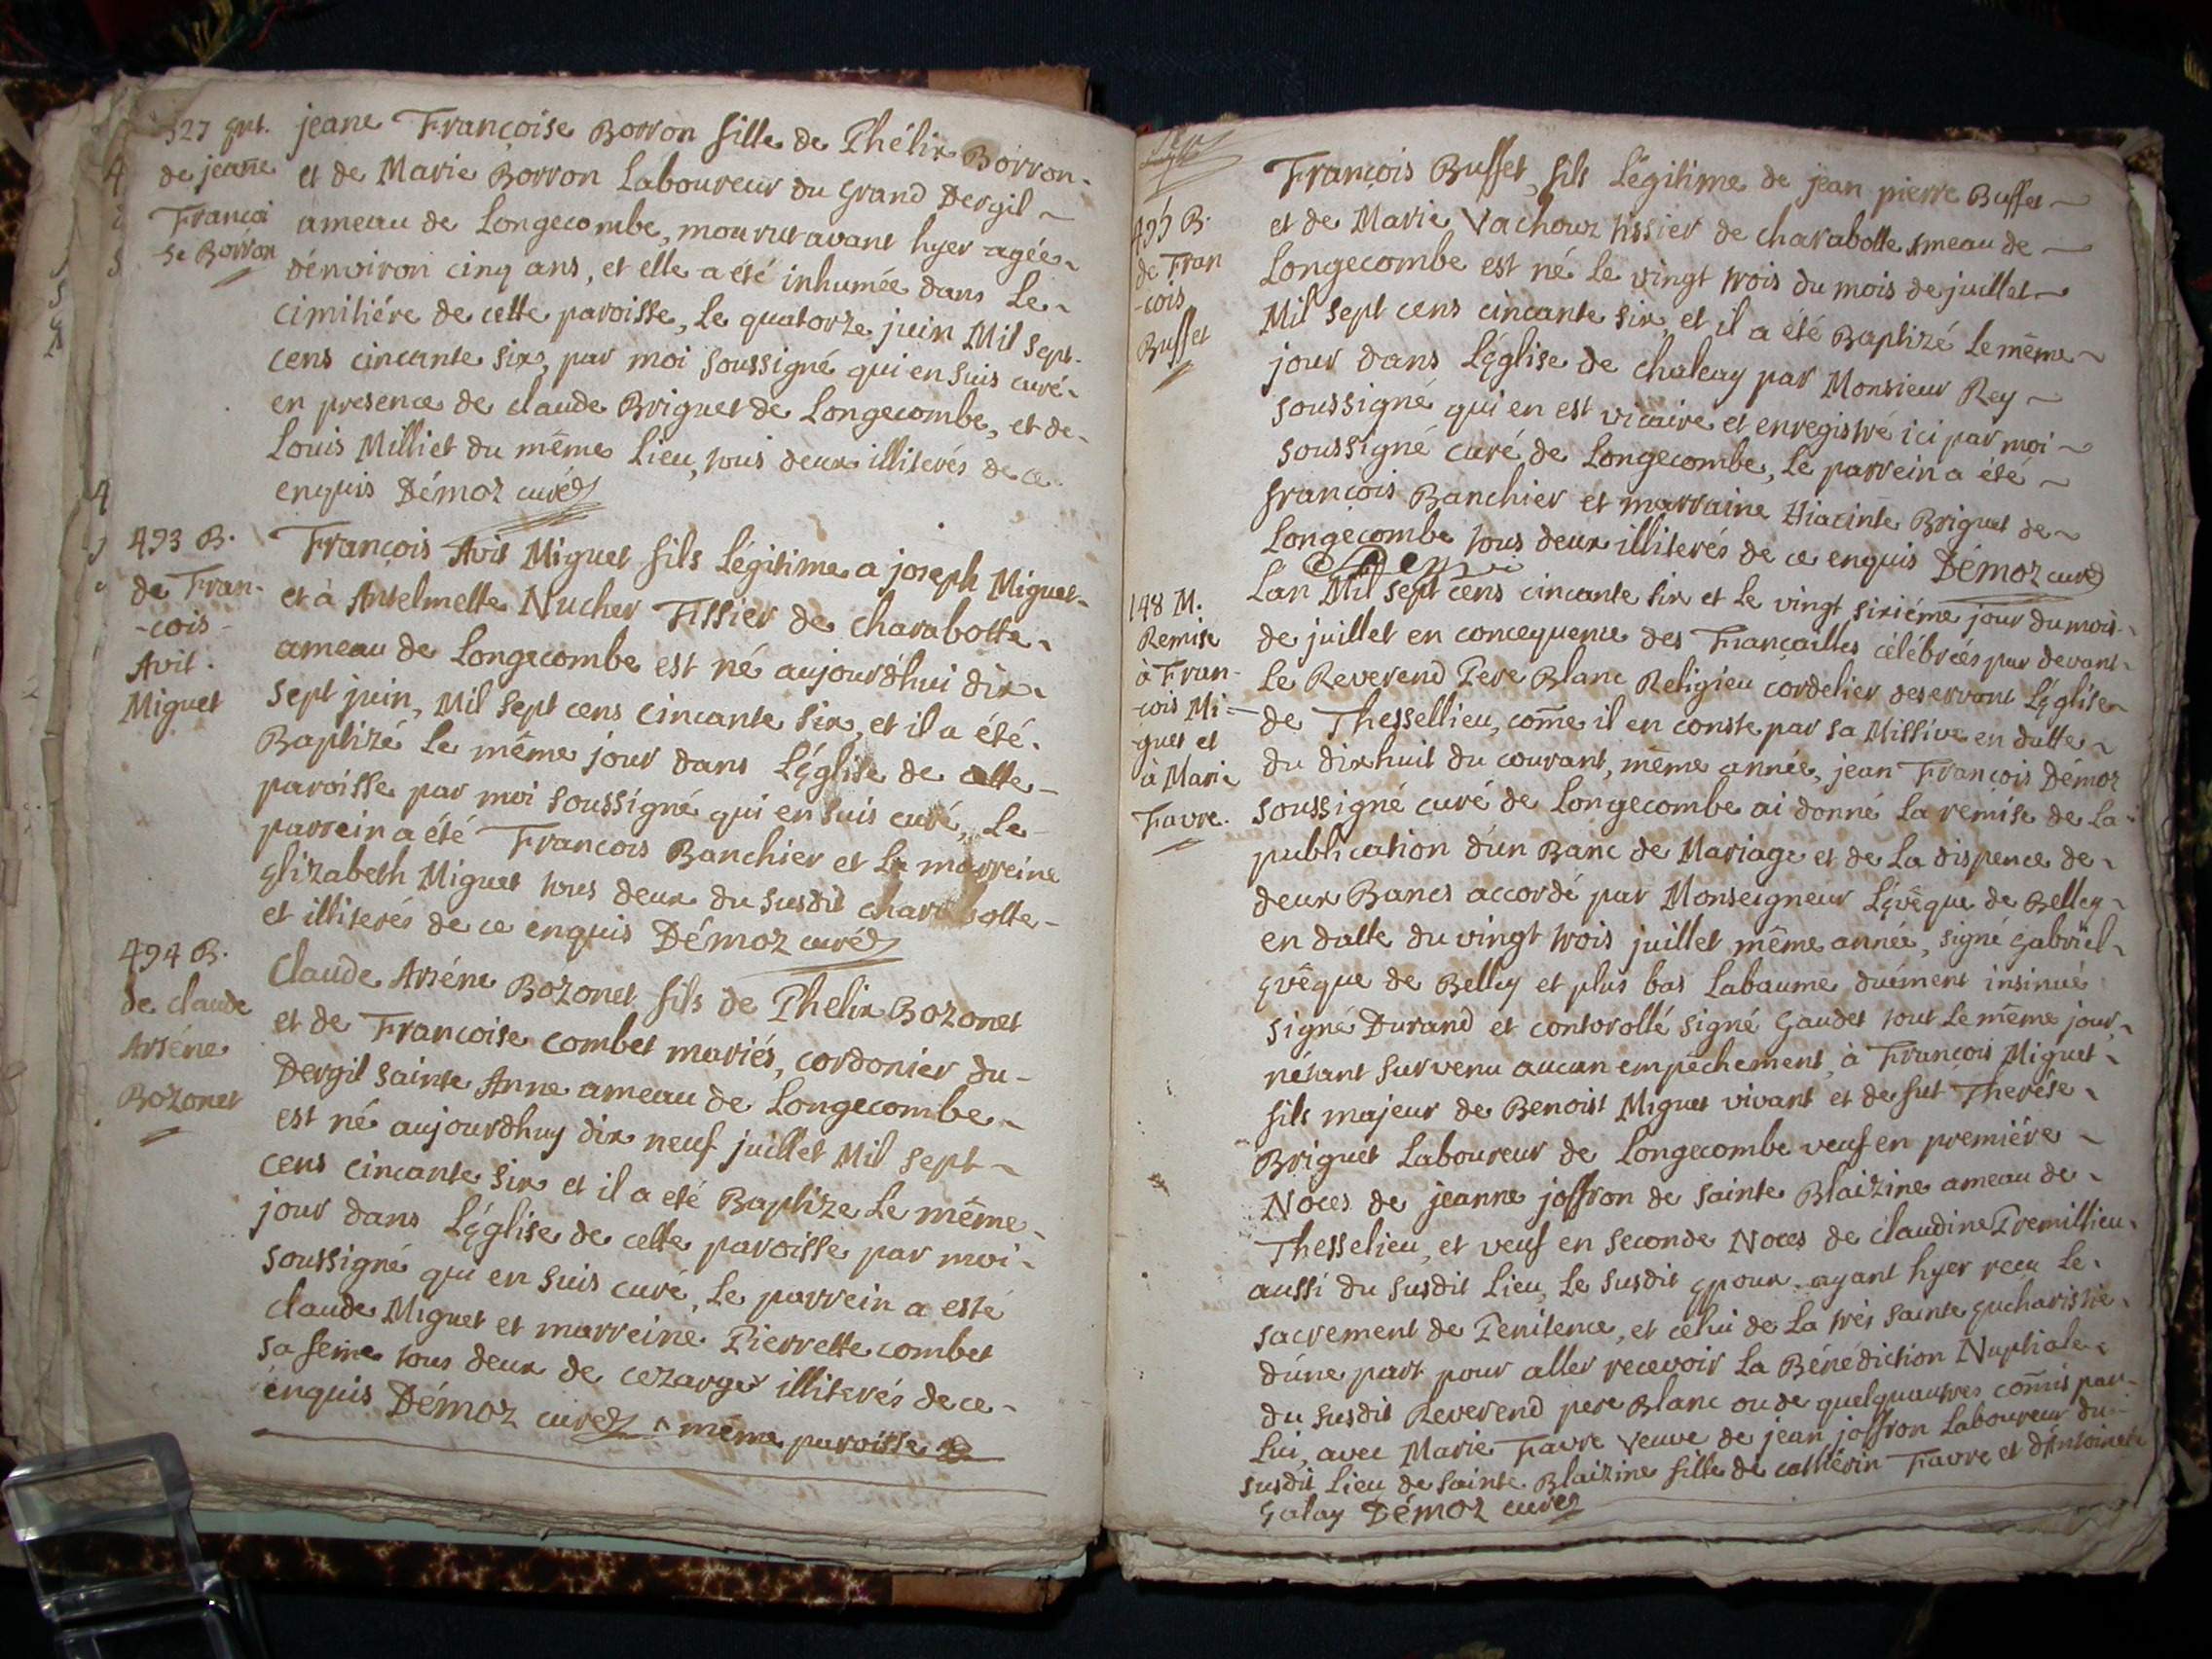 327 Ent.
de jeanne
Françoi
se Borron
jeane Françoise Borron fille de Phélix Borron
et de Marie Borron Laboureur du Grand Dergil
ameau de Longecombe, mourut avant hyer agée
d'énviron cinq ans, et elle a été inhumée dans Le
cimitiére de cette paroisse, Le quatorze juin Mil sept
cens cincante six, par moi soussigné qui en suis curé
en presence de claude Briguet de Longecombe, et de
Louis Milliet du même Lieu, tous deux illiterés de ce
enquis Démoz curé
493 B.
de Fran-
-cois
Avit
Miguet
François Avit Miguet fils Légitime a joseph Miguet
et à Antelmette Nucher Tissier de charabotte
ameau de Longecombe est né aujourd'hui dix
sept juin, Mil sept cens cincante six, et il a été
Baptizé Le même jour dans L'église de cette
paroisse par moi soussigné qui en suis curé, Le
parrein a été Francois Banchier et La marreine
Elizabeth Miguet tous deux du susdit charabotte
et illiterés de ce enquis Démoz curé
494 B.
de claude
Arséne
Bozonet
Claude Arséne Bozonet fils de Phelix Bozonet
et de Francoise combet mariés, cordonier du
Dergil sainte Anne ameau de Longecombe
est né aujourdhuy dix neuf juillet Mil sept
cens cincante six et il a eté Baptize Le même
jour dans L'église de cette paroisse par moi
soussigné qui en suis curé, Le parrein a esté
claude Miguet et marreine Pierrette combet
sa feme tous deux de cezarge ^ illiterés de ce
enquis Démoz curé ^ même paroisse
495 B.
de Fran
-cois
Buffet
François Buffet, fils Légitime de jean pierre Buffet
et de Marie Vachouz tissier de charabotte ameau de
Longecombe est né Le vingt trois du mois de juillet
Mil sept cens cincante six, et il a été Baptizé Le même
jour dans L'église de chaleay par Monsieur Rey
soussigné qui en est vicaire et enregistré ici par moi
soussigné curé de Longecombe, Le parrein a été
françois Banchier et marraine Hiacinte Briguet de
Longecombe tous deux illiterés de ce enquis Démoz curé
Rey
148 M.
Remise
à Fran-
-cois Mi-
-guet et
à Marie
Favre.
L'an Mil sept cens cincante six et Le vingt sixiéme jour du mois
de juillet en concequence des Fiançailles célébrées par devant
Le Reverend Pere Blanc Religieu cordelier deservant L'église
de Thessellieu, come il en conste par sa Missive en datte
du dixhuit du courant, même année, jean François Démoz
soussigné curé de Longecombe ai donné La remise de La
publication d'un Banc de Mariage et de La dispence de
deux Bancs accordé par Monseigneur L'évêque de Belley
en datte du vingt trois juillet même année, signé Gabriel
évêque de Belley et plus bas Labaume duément insinué
signé Durand et controllé signé Gaudet tout Le même jour,
n'étant survenu aucun empêchement, à François Miguet
fils majeur de Benoist Miguet vivant et de fut Therése
Briguet Laboureur de Longecombe veuf en premiére
Noces de jeanne joffron de sainte Blaizine ameau de
Thesselieu, et veuf en seconde Noces de claudine Premillieu
aussi du susdit Lieu, Le susdit Epoux ayant hyer reçu Le
sacrement de Penitence, et celui de La trés sainte Eucharistie
d'une part pour aller recevoir La Bénédiction Nuptiale
du susdit Reverend pere Blanc ou de quelqu'autres comis par
Lui, avec Marie Favre veuve de jean joffron Laboureur du
susdit Lieu de sainte Blaizine fille de cathérin Favre et d'Antoinete
Galay Démoz curé